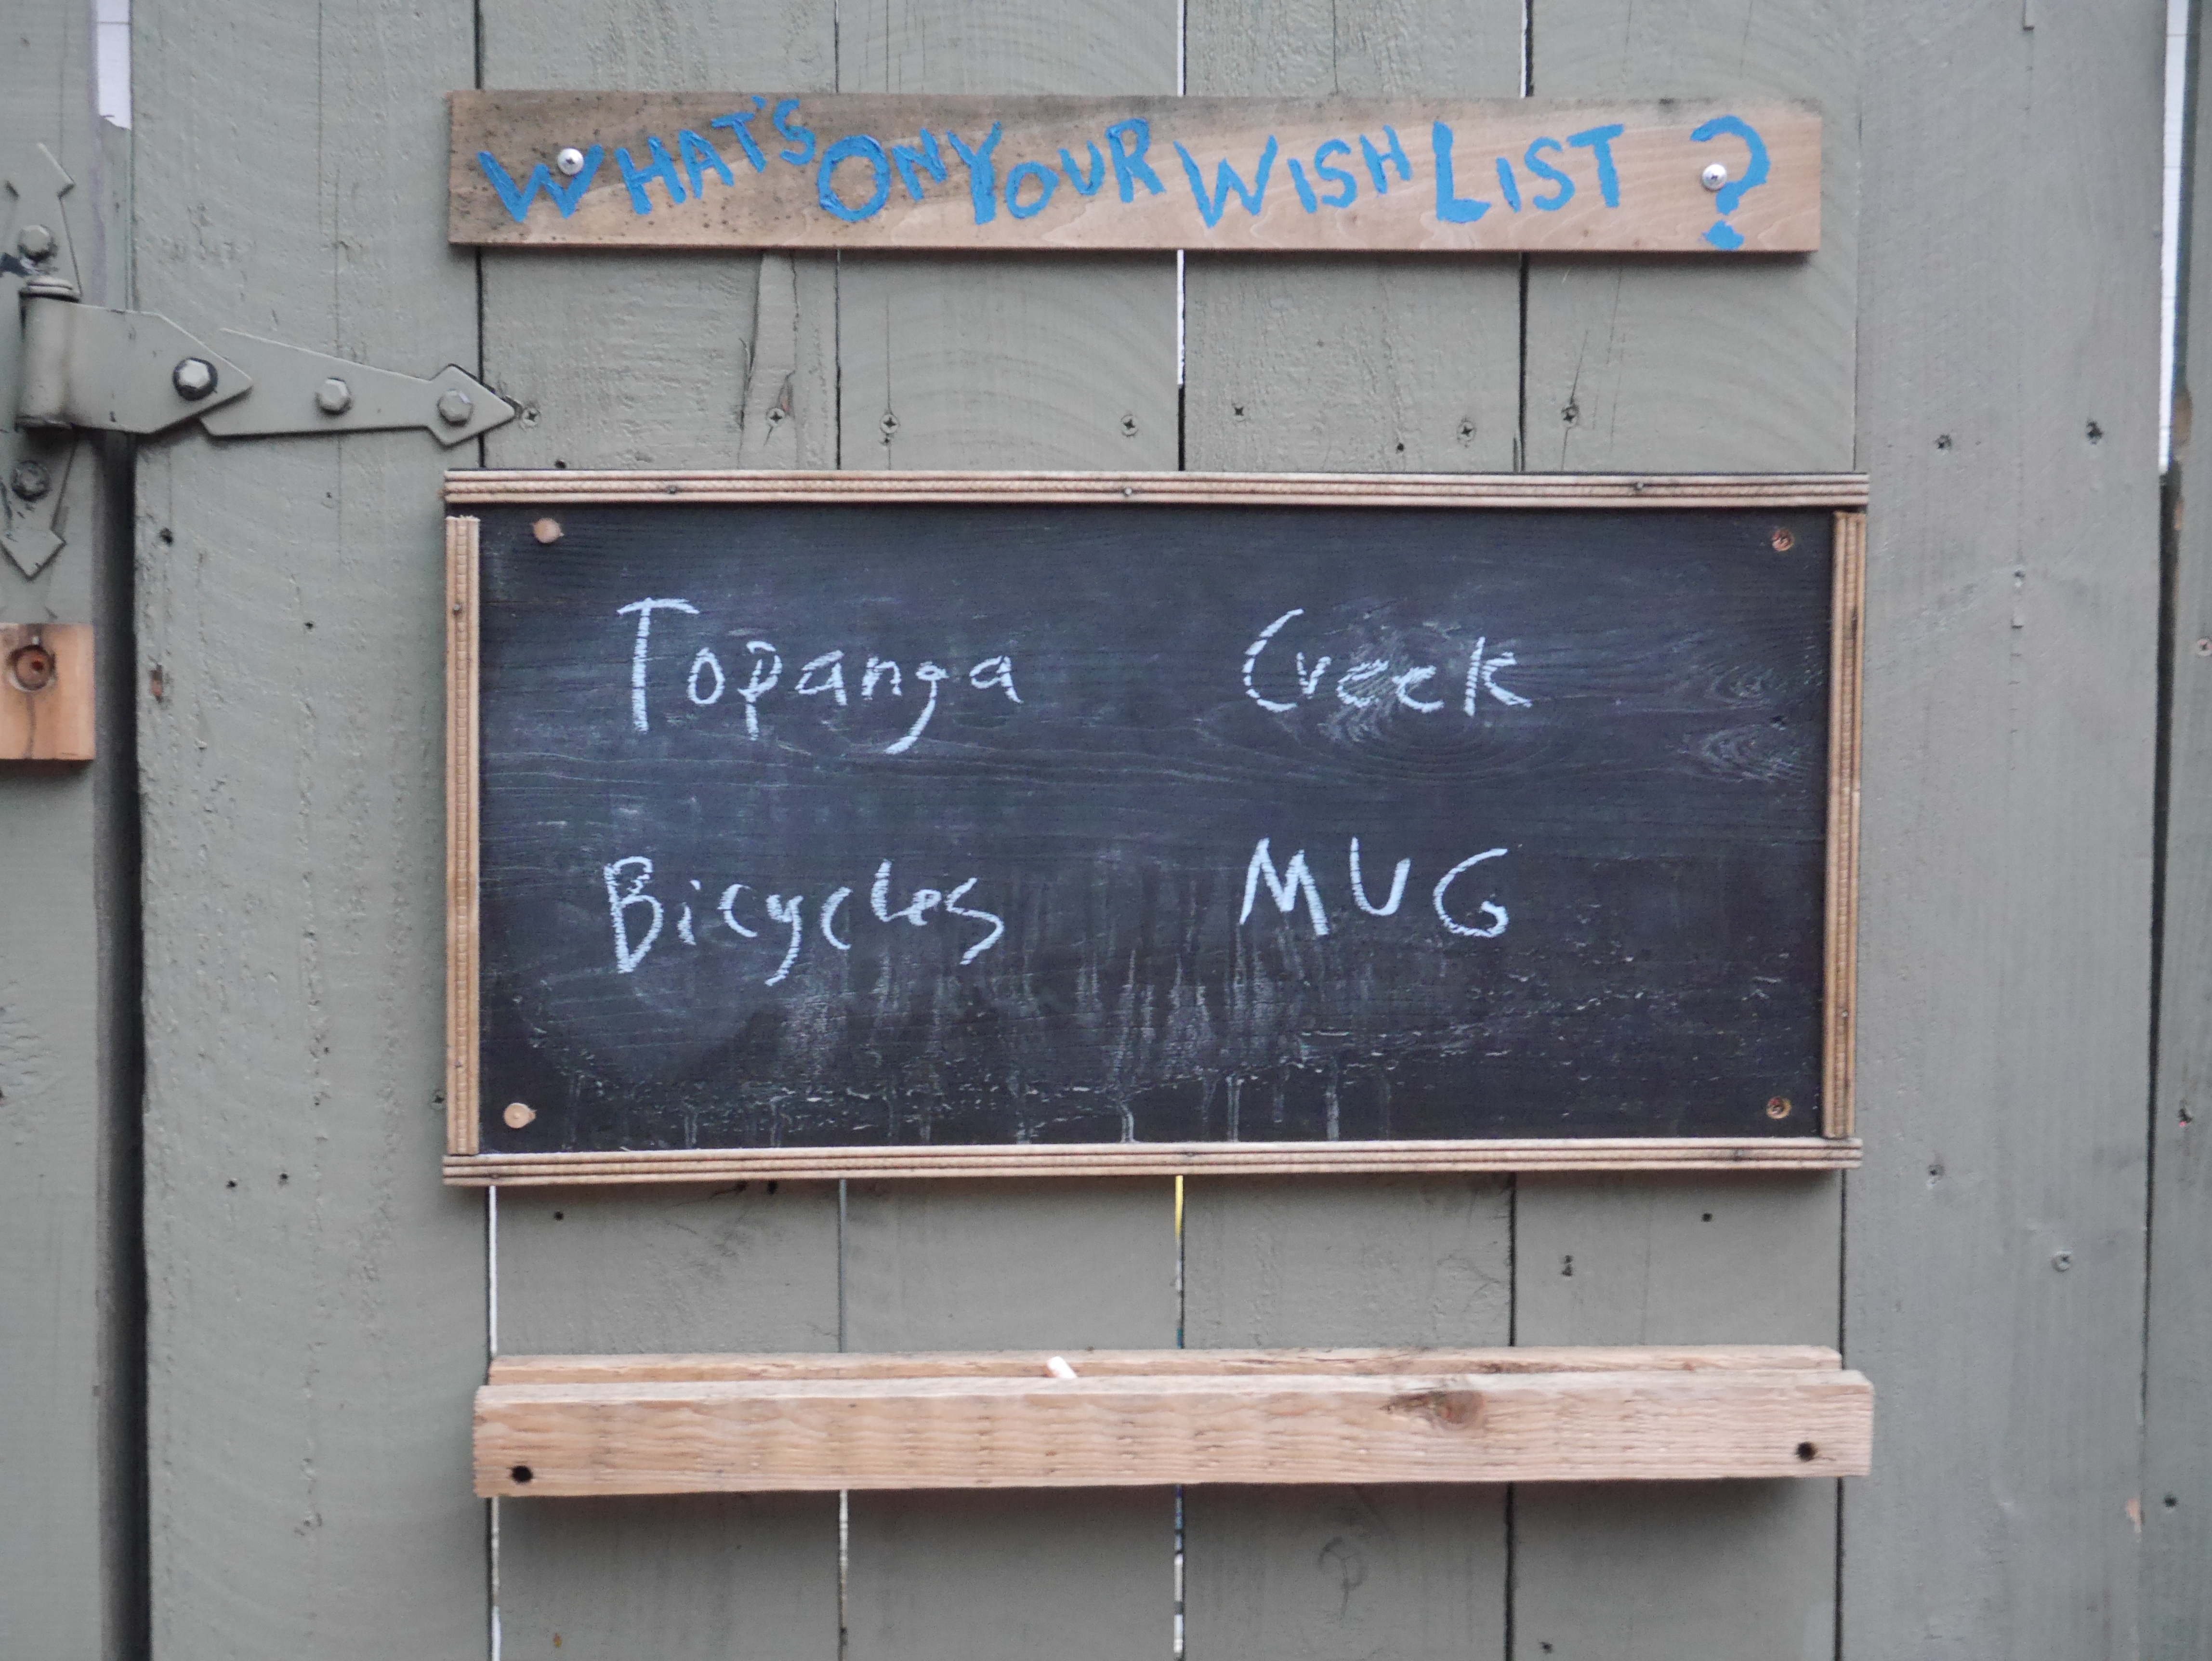 WHAT'S ON YOUR WISH LIST ?
Topanga Creek
Bicycles MUG